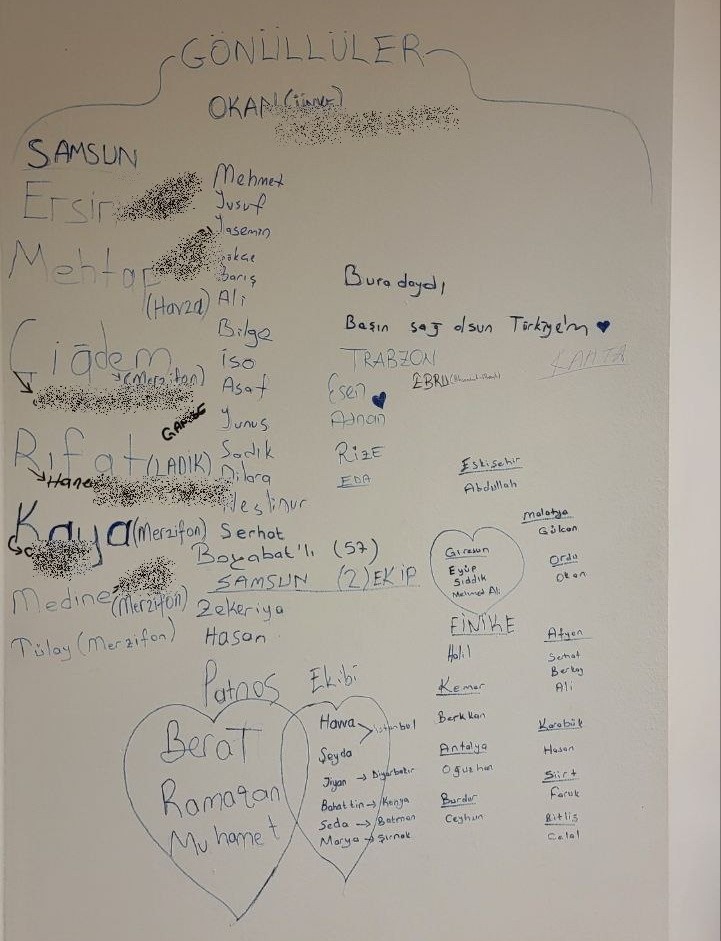 GÖNÜLLÜLER
OKAN
SAMSUN
Ersin
Mehtap
(Havza)
Çiğdem
(Merzifon)
GAMZE
Rıfat (LADIK)
Kaya (Merzifon)
Medine (Merzifon)
Tülay (Merzifon)
Mehmet
Yusuf
Yasemin
Gökçe
Barış
Ali
Bilge
iso
Asaf
Yunus
Sadık
Dilara
Neslinur
Serhat
Boyabat'lı (57)
SAMSUN (2) EKİP
Zekeriya
Hasan
Buradaydı
Başın sağ olsun Türkiye'm ♥
TRABZON
Esen ♥
EBRU
Adnan
RizE
EDA
Eskişehir
Abdullah
Malatya
Gülcan
Giresun
Eyüp
Sıddık
Mehmed Ali
Ordu
Okan
FİNİKE
Halil
Afyon
Serhat
Berkay
Ali
Kemer
Berkkan
Karabük
Hasan
Antalya
Oğuzhan
Siirt
Faruk
Burdur
Ceyhun
Bitlis
Celal
Patnos Ekibi
Berat
Ramazan
Muhamet
Havva
İstanbul
Şeyda
Jiyan → Diyarbakır
Bahattin → Konya
Seda → Batman
Marya → Şırnak